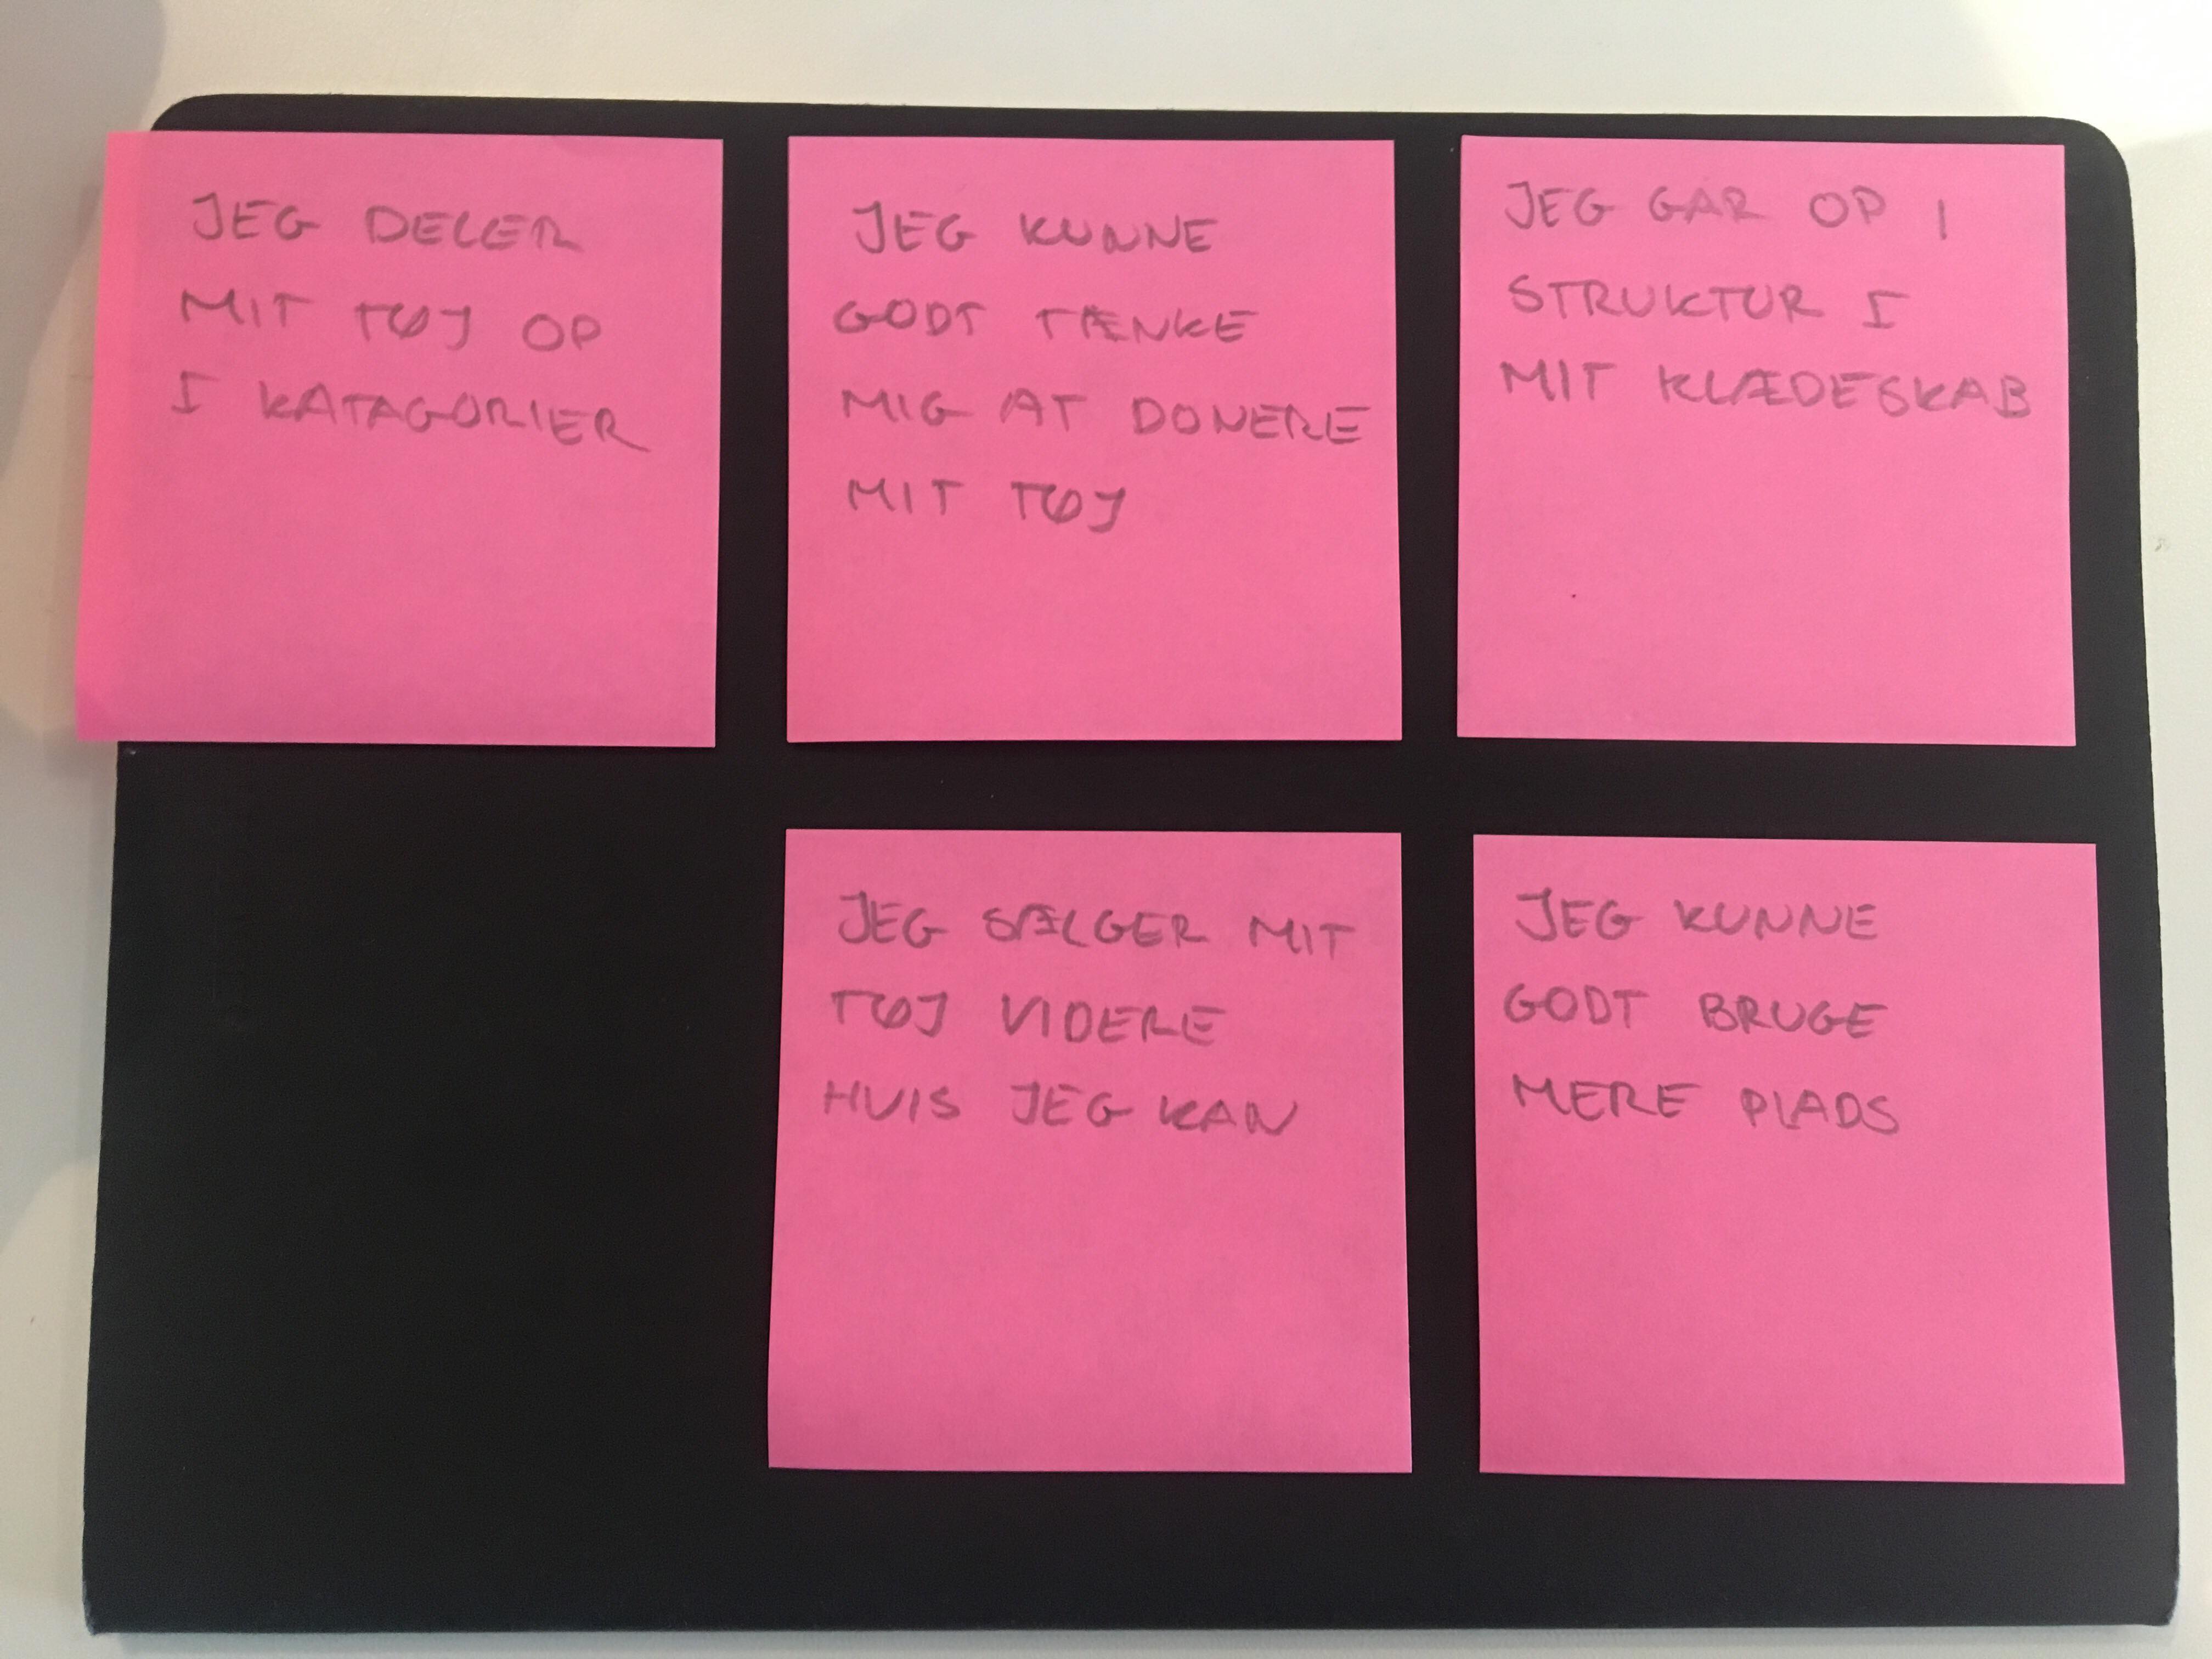 JEG DELER
MIT TØJ OP
I KATAGORIER
JEG KUNNE
GODT TÆNKE
MIG AT DONERE
MIT TØJ
JEG GÅR OP I
STRUKTUR I
MIT KLÆDESKAB
JEG SÆLGER MIT
TØJ VIDERE
HVIS JEG KAN
JEG KUNNE
GODT BRUGE
MERE PLADS